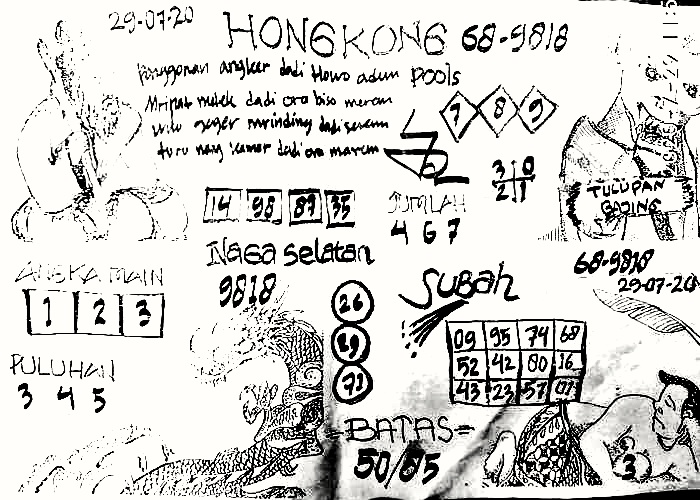 29-07-20
HONGKONG 68-9818
Panggonan angker dadi Howo adun pools
Mripat melek dadi ora biso meram
Wulu geger mrinding dadi serem
turu nang kamar dadi ora marem
7 8 9
3 0
2 1
TULUPAN
BAJING
14 98 87 35
JUMLAH
4 6 7
Naga selatan
9818
ANGKA MAIN
1 2 3
PULUHAN
3 4 5
26
29
71
SUBAH
68-9818
29-07-20
09 95 74 68
52 42 80 16
43 23 57 07
=BATAS=
50/55
3